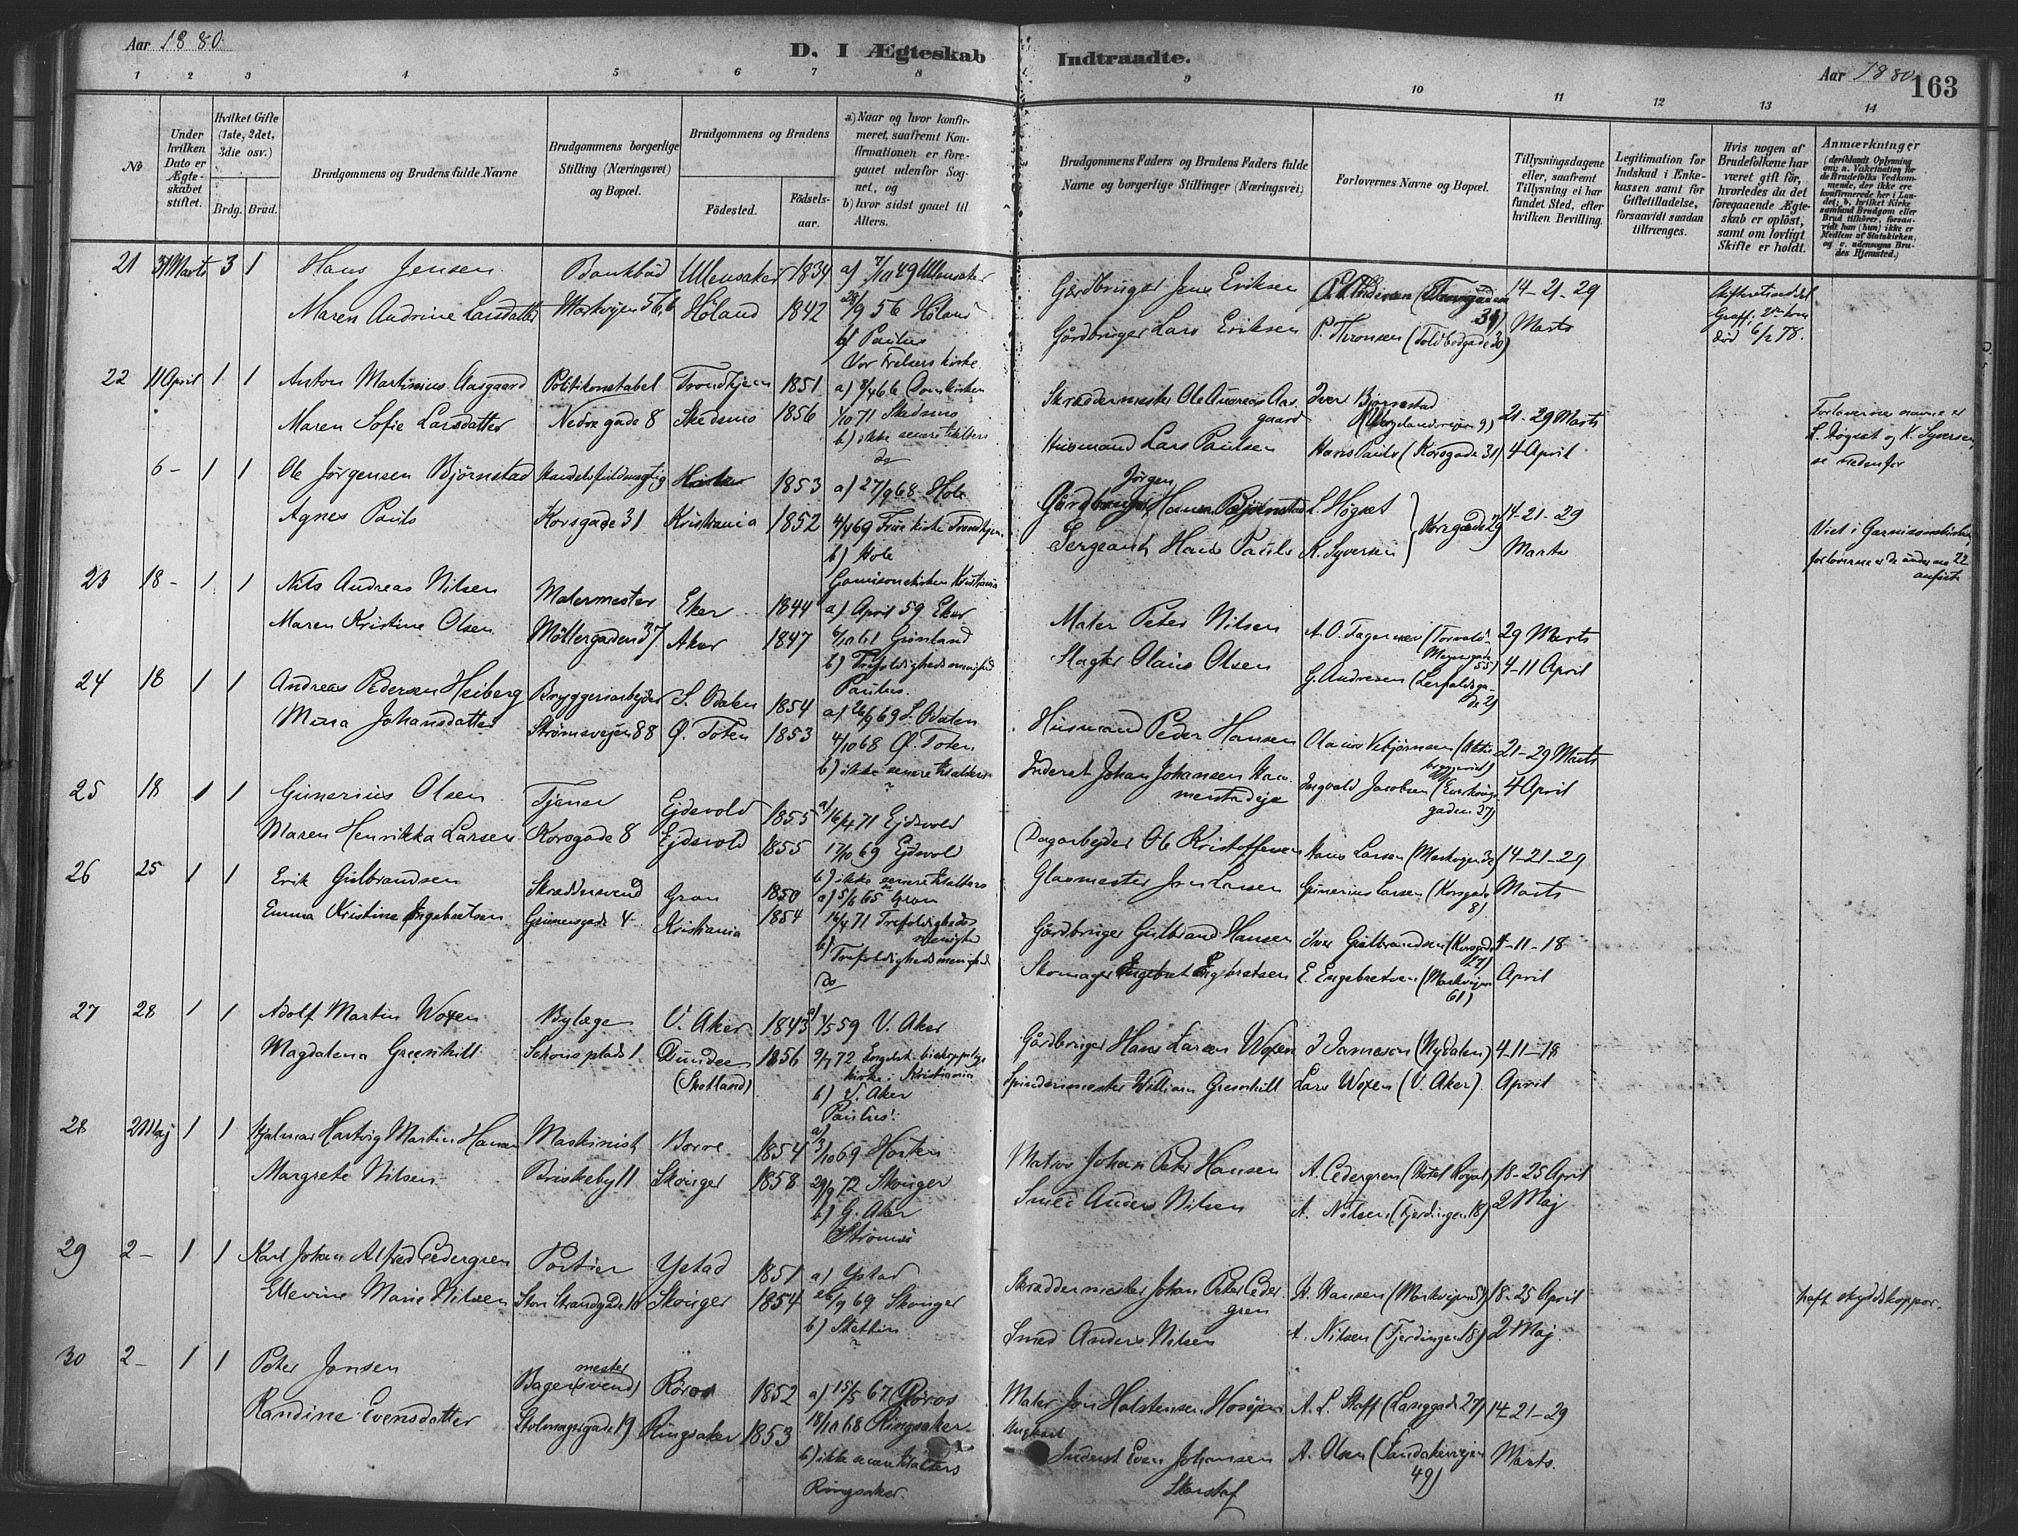 Aar 1880.
D. I Ægteskab Indtraadte.
Aar 1880.
163
1 2 3 4 5 6 7 8 9 10 11 12 13 14
No
Under hvilken Dato er Ægteskabet stiftet.
Hvilket Gifte (1ste, 2det, 3die osv.)
Brdg. Brud.
Brudgommens og Brudens fulde Navne
Brudgommens borgerlige Stilling (Næringsvei) og Bopæl.
Brudgommens og Brudens
Födested.
Födselsaar.
a) Naar og hvor konfirmeret, saafremt Konfirmationen er foregaaet udenfor Sognet, og
b) hvor sidst gaaet til Alters.
Brudgommens Faders og Brudens Faders fulde Navne og borgerlige Stillinger (Næringsvei)
Forlovernes Navne og Bopæl.
Tillysningsdagene eller, saafremt Tillysning ei har fundet Sted, efter hvilken Bevilling.
Legitimation for Indskud i Enkekassen samt for Giftetilladelse, forsaavidt saadan tiltrænges.
Hvis nogen af Brudefolkene har været gift för, hvorledes da det foregaaende Ægteskab er oplöst, samt om lovligt Skifte er holdt.
Anmærkninger
(deriblandt Oplysning om: a. Vakcination for de Brudefolks Vedkommende, der ikke ere konfirmerede her i Landet; b. hvilket Kirkesamfund Brudgom eller Brud tilhörer, forsaavidt han (hun) ikke er Medlem af Statskirken, og c. udensogns Brudes Hjemsted.)
21 31 Marts 3 1 Hans Jensen Ullensaker 1834 a) 7/10 49 Ullensaker
Maren Andrine Larsdatter Markvejen 56,6 Höland 1842 28/9 56 Höland
b) Paulus
Gårdbruger Jens Eriksen 14-21-29
Gårdbruger Lars Eriksen P. Thronsen (Toldbodgade 30) Marts
død 6/2 78.
22 11 April 1 1 Anton Martinius Aasgaard Politikonstabel Trondhjem 1851 Vor Frelsers kirke
a) 8/4 66 Domkirken
Maren Sofie Larsdatter Nedregade 8 Skedsmo 1856 1/10 71 Skedsmo
b) ikke senere til alters
Skræddermester Ole Andreas Aasgaard Iver Bjørnestad 21-29 Marts
Husmand Lars Paulsen Hans Pauls (Korsgade 31) 4 April
Forlovernes navne er
L. Högset og K. Syversen,
se nedenfor
6- 1 1 Ole Jörgensen Bjørnstad Handelsfuldmægtig Hole 1853 a) 27/9 68 Hole
Agnes Pauls Korsgade 31 Kristiania 1852 4/4 69 Frue kirke Trondhjem
b) Hole
Gårdbruger Jörgen Hansen Bjørnstad L. Högset 14-21-29
Sergeant Hans Pauls K. Syversen Korsgade 29 Marts
Viet i Garnisonskirken,
forloverne er de under no 22
anførte
23 18- 1 1 Nils Andreas Nilsen Malermester Eker 1844 Garnisonskirken Kristiania
a) April 59 Eker
Maren Kristine Olsen Möllergaden 37 Aker 1847 6/10 61 Grönland
b) Trefoldigheds menighed
Maler Peter Nilsen 29 Marts
Slagter Olaus Olsen G. Andresen 4-11 April
24 18 1 1 Andreas Pedersen Heiberg Bryggeriarbejder S. Odalen 1854 Paulus.
a) 26/9 69 S. Odalen
Mina Johansdatter Strømsvejen 88 Ø. Toten 1853 4/10 68 Ø. Toten
b) ikke senere til alters
Husmand Peder Hansen 21-29 Marts
Inderst Johan Johansen Ingvald Jacobsen 4 April
25 18 1 1 Gunerius Olsen Tjener Ejdsvold 1855 a) 16/4 71 Ejdsvold
Maren Henrikka Larsen Korsgade 8 Ejdsvold 1855 17/10 69 Ejdsvold
b) ikke senere til alters
Dagarbejder Ole Kristoffersen Hans Larsen (Markvejen 32) 14-21-29
Glasmester Jon Larsen Gunerius Larsen (Korsgade 8) Marts
26 25 1 1 Erik Gulbrandsen Skræddersvend Gran 1850 a) 5/6 65 Gran
Emma Kristine Engebretsen Grünersgade 4 Kristiania 1854 16/4 71 Trefoldigheds menighed
b) Trefoldigheds menighed
Gårdbruger Gulbrand Hansen Iver Gulbrandsen (Korsgade 17) 4-11-18
Skomager Engebret Engebretsen E. Engebretsen (Markvejen 61) April
27 28 1 1 Adolf Martin Woxen Bylæge V. Aker 1843 a) 1/5 59 V. Aker
Magdalena Greenhill Schous plads 1 Dundee (Skotland) 1856 9/7 72 Engelsk biskoppelige kirke i Kristiania
b) V. Aker
Gårdbruger Hans Larsen Woxen J Jameson (Nydalen) 4-11-18
Spinderimester William Greenhill Lars Woxen (V. Aker) April
28 2 Maj 1 1 Hjalmar Hartvig Martin Hansen Maskinist Borre 1854 Paulus.
a) 3/10 69 Horten
Margrete Nilsen Briskeby 11 Skonger 1858 29/9 72 Skonger
b) G. Aker
Matros Johan Peter Hansen A. Cedergren (Hotel Royal) 18-25 April
Smed Anders Nilsen A. Nilsen (Fjerdingen 18) 2 Maj
29 2- 1 1 Karl Johan Alfred Cedergren Portier Ystad 1851 a) Ystad
Ellevine Marie Nilsen Store Strandgade 18 Skonger 1854 26/9 69 Skonger
b) Stettin
Skræddermester Johan Peter Cedergren H. Hansen (Markvejen 57) 18-25 April
Smed Anders Nilsen A. Nilsen (Fjerdingen 18) 2 Maj
haft skyddskoppor.
30 2- 1 1 Peter Jonsen Bager(svend) mester Röros 1852 a) 15/5 67 Röros
Randine Evensdatter 19 Ringsaker 1853 18/10 68 Ringsaker
b) ikke senere til alters
Ringsaker.
Maler Jon Halstensen A. L. Staff (Langgade 27) 14-21-29
Inderst Even Johansen Skarstad A. Olsen (Sandakerveien 49) Marts.